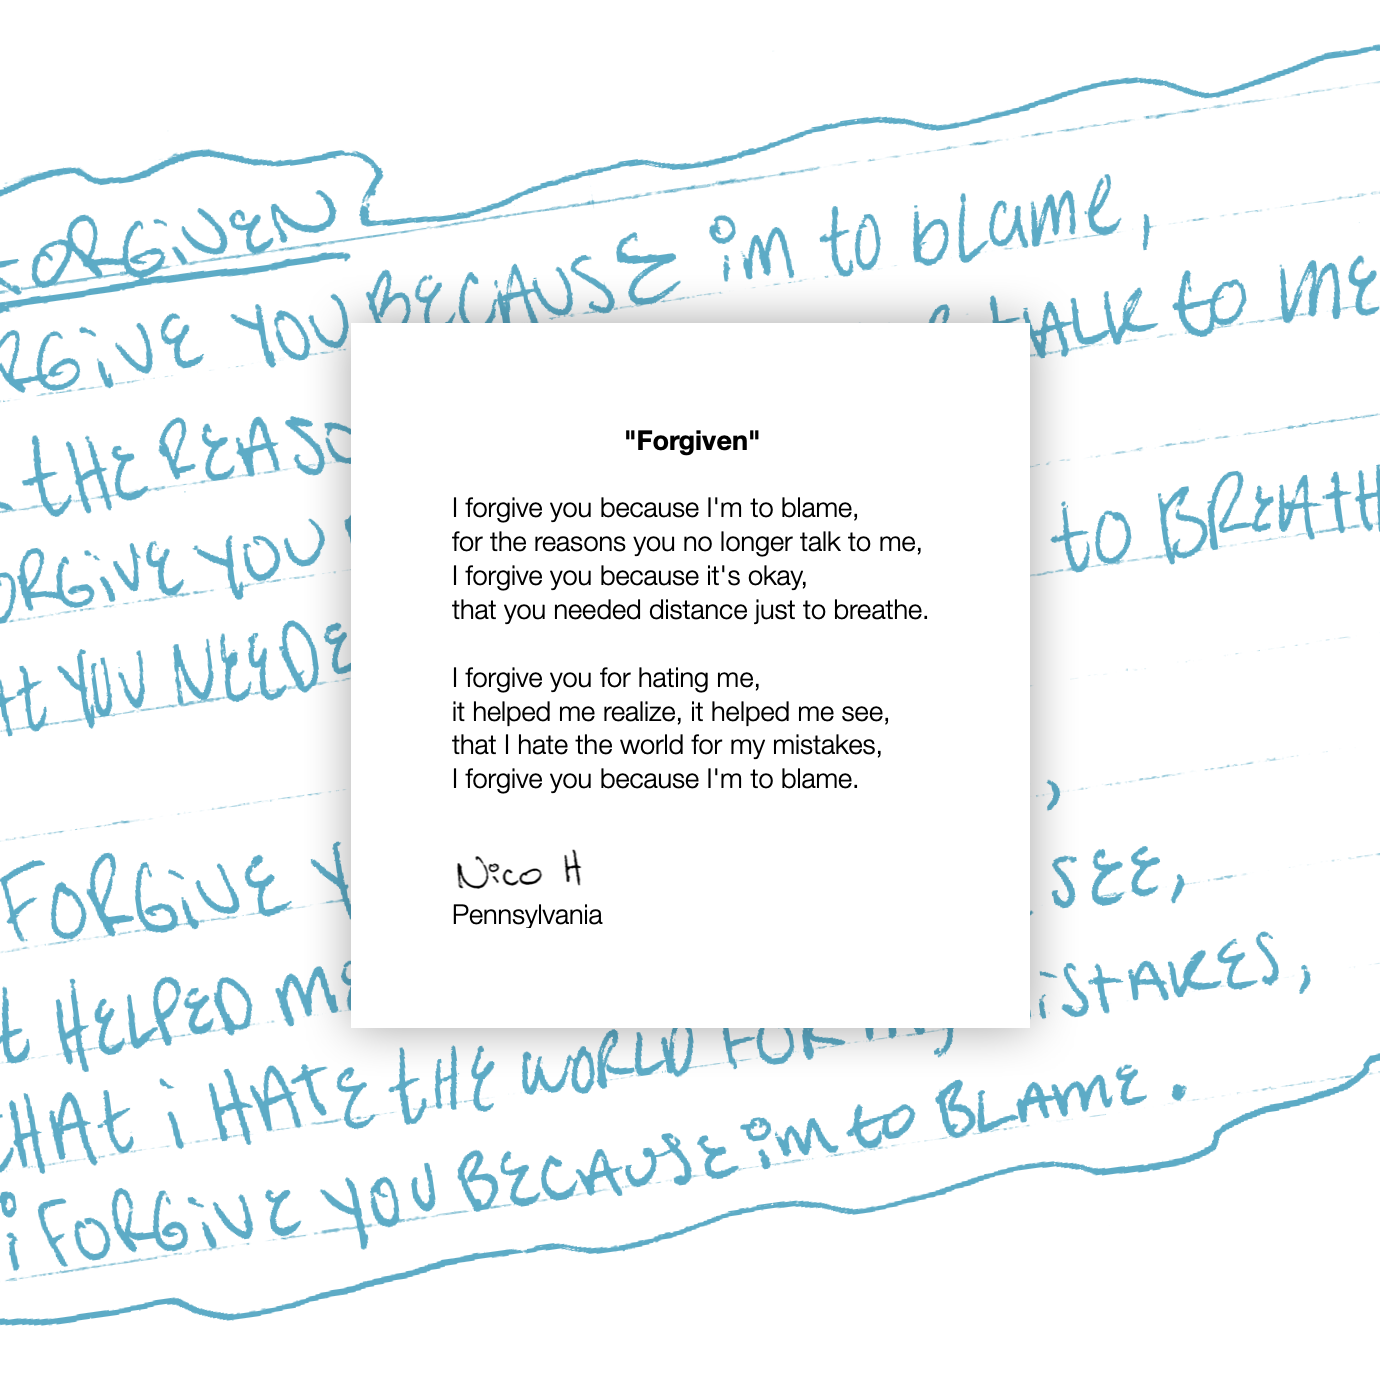 FORGIVEN
RGIVE YOU BECAUSE im to blame,
TALK to ME
THE REASO
ORGIVE YOU
to BREATH
YOU NEEDE
FORGIVE Y
SEE,
HELPED ME
MISTAKES,
THAT i HATE tHE WORLD FOR my
i FORGIVE YOU BECAUSE im to BLAME.
"Forgiven"
I forgive you because I'm to blame,
for the reasons you no longer talk to me,
I forgive you because it's okay,
that you needed distance just to breathe.
I forgive you for hating me,
it helped me realize, it helped me see,
that I hate the world for my mistakes,
I forgive you because I'm to blame.
Nico H
Pennsylvania